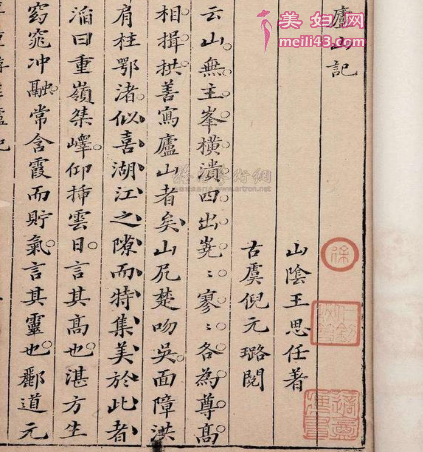 美妇网
meili43.com
廬山記
山陰王思任著
古虞倪元璐閱
云山無主峯橫潰四出嶤〻寥〻各為尊高
相揖拱善寫廬山者矣山尻楚吻吳面障洪
肩柱鄂渚似喜湖江之隙而特集美於此者
滔曰重嶺桀嶂仰插雲日言其高也湛方生
窈窕冲融常含霞而貯氣言其靈也酈道元